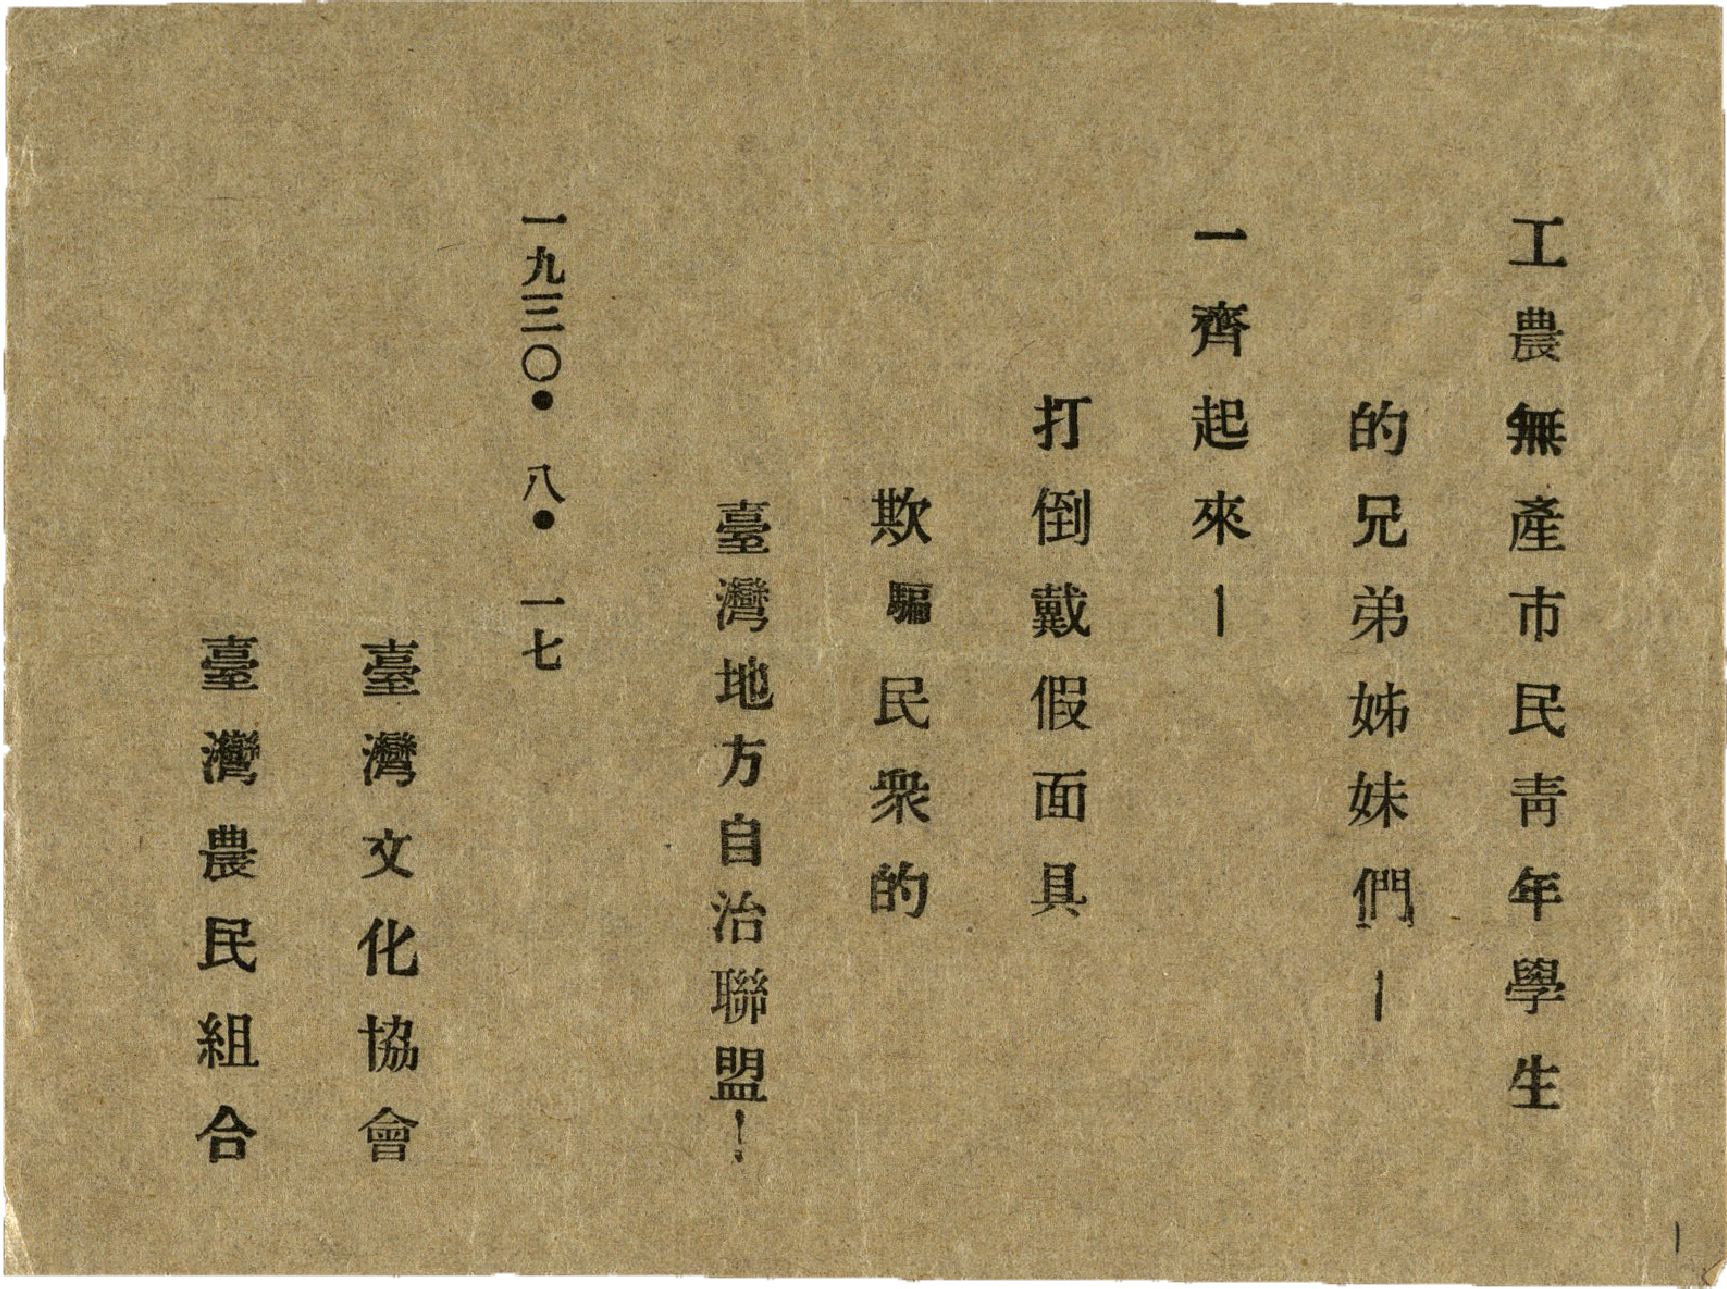 工農無產市民靑年學生
的兄弟姊妹們—
一齊起來—
打倒戴假面具
欺騙民衆的
臺灣地方自治聯盟！
一九三〇●八●一七
臺灣文化協會
臺灣農民組合
1